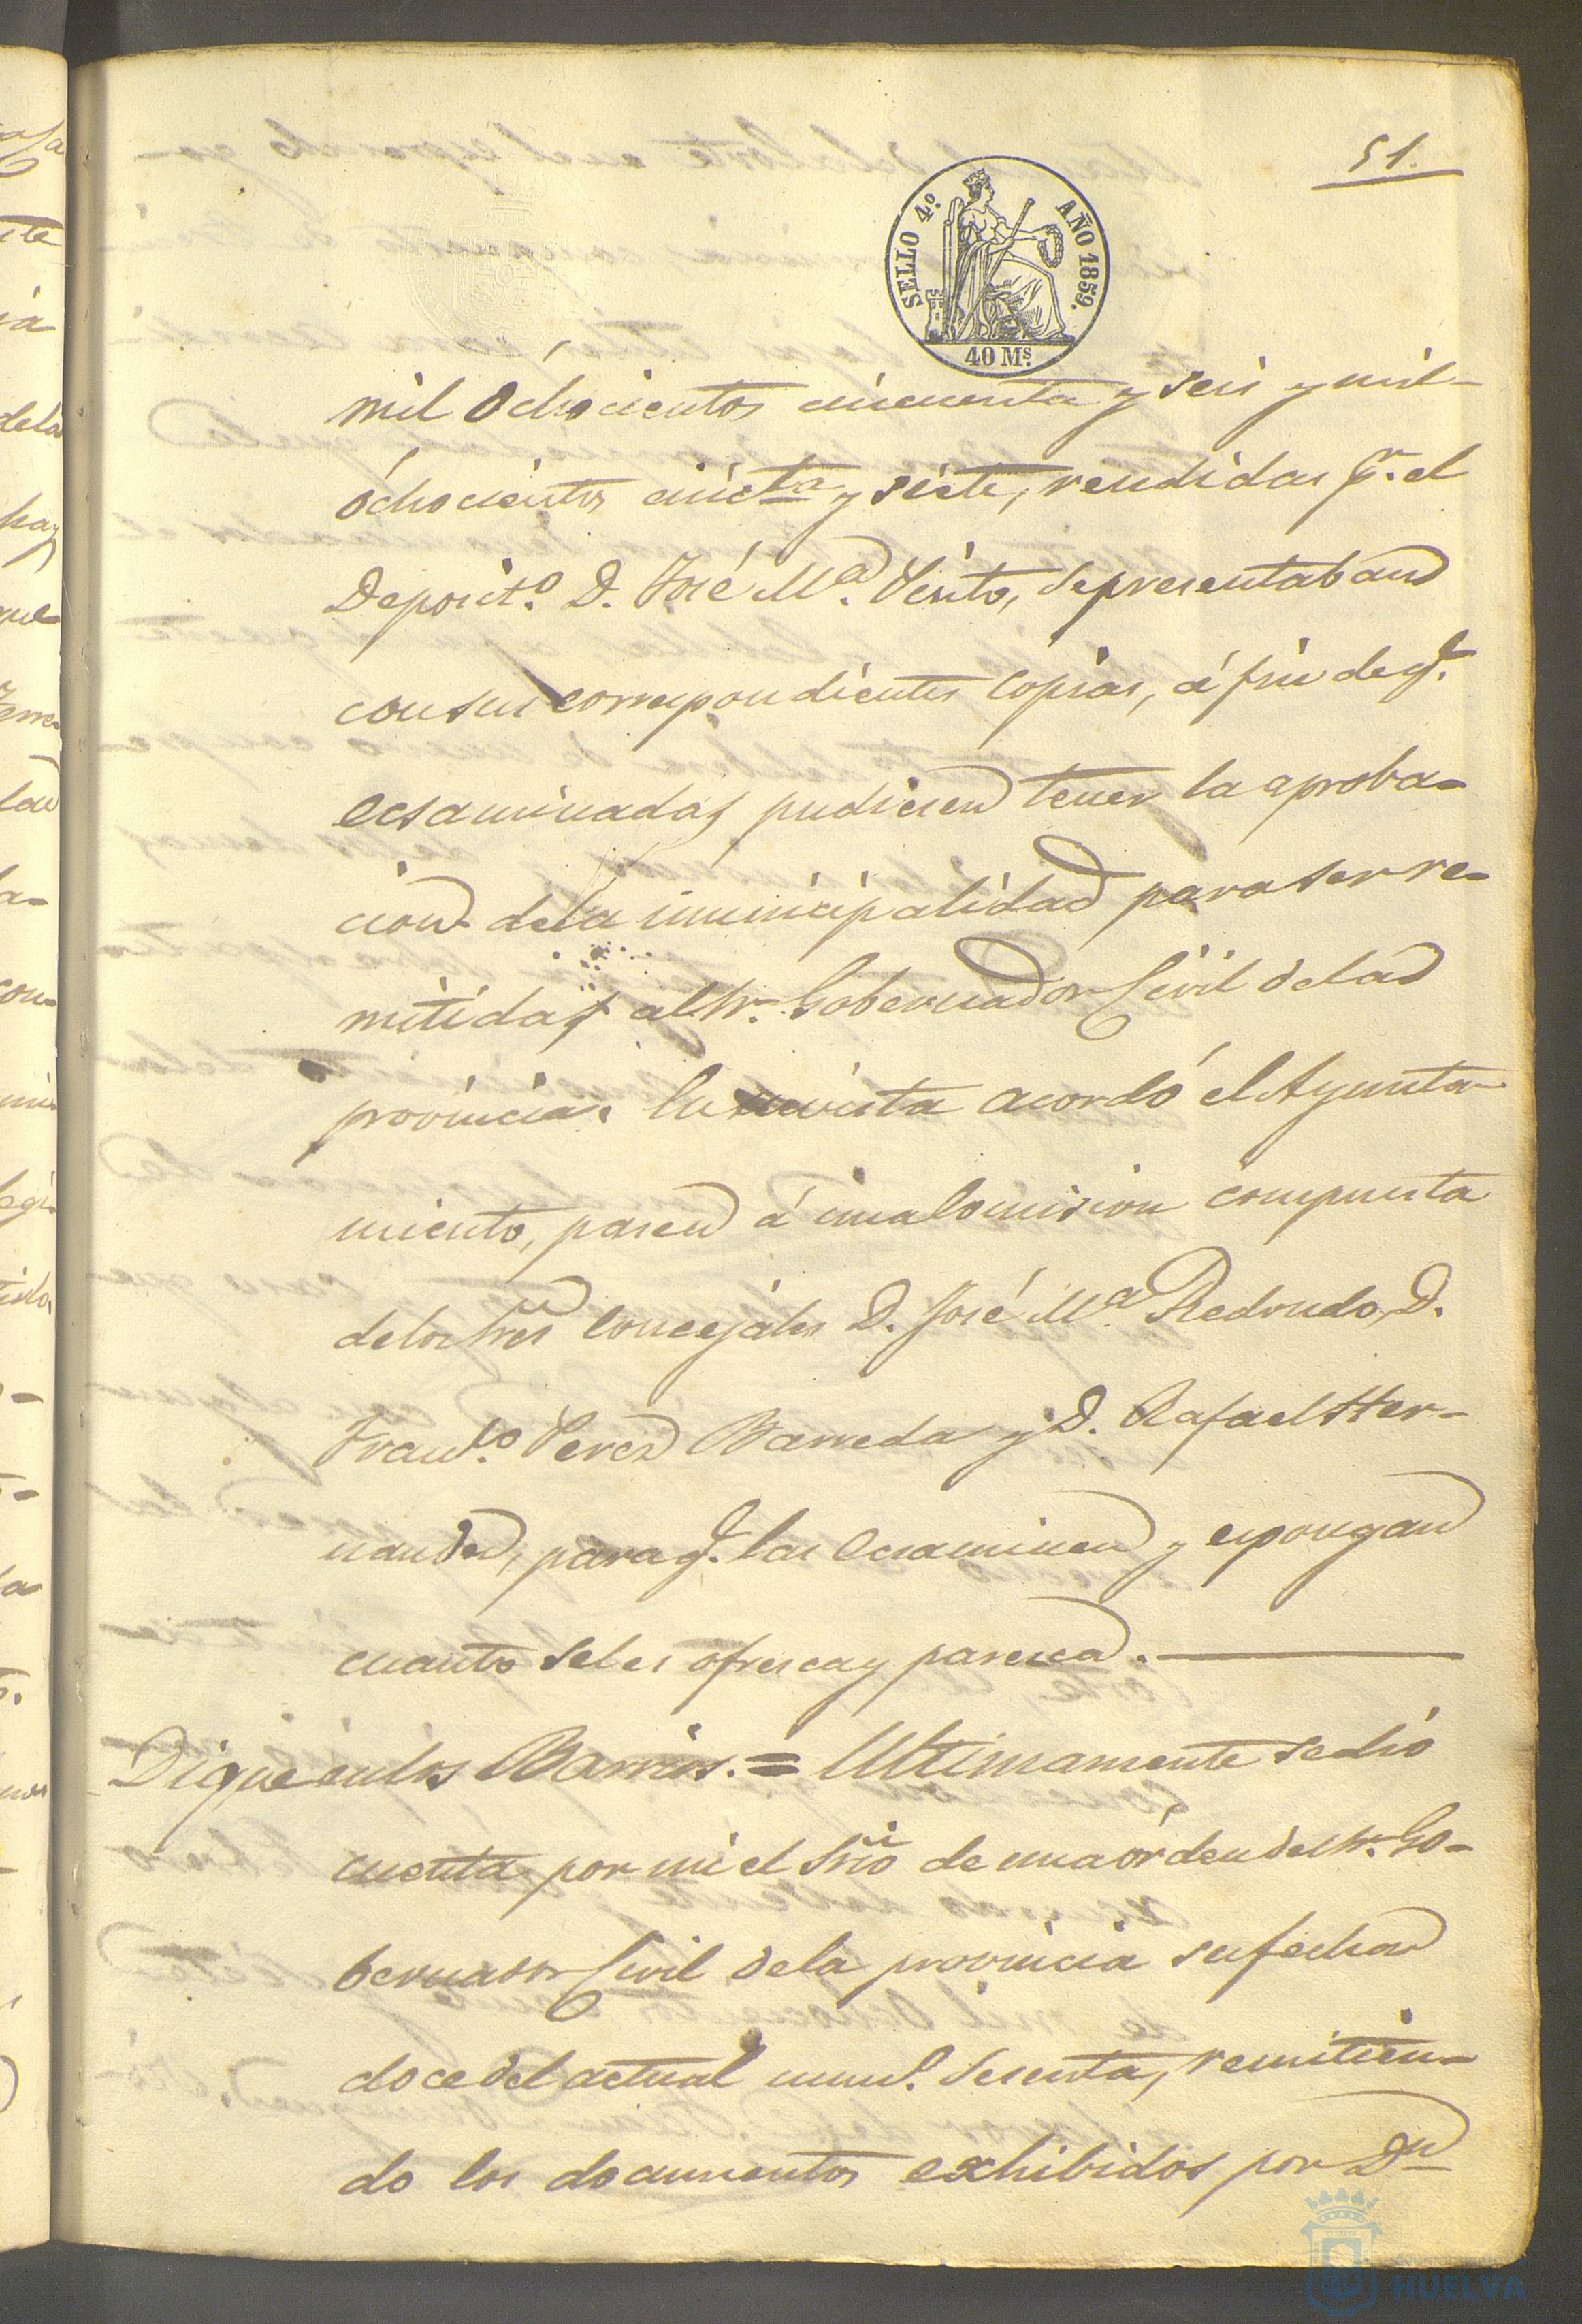 51.
SELLO 4º. AÑO 1859.
40 Ms.
mil ochocientos cincuenta y seis y mil
ochocientos cinctª y siete, rendidas pr. el
Deposit.º D. José Mª. Pinto, se presentaban
con sus correspondientes copias, á fin de q.
ecsaminadas pudiesen tener la aproba-
cion de la municipalidad para ser re-
mitidas al Sr. Gobernador Civil de la
provincia. En su vista acordó el Ayunta-
miento, pasen á una Comision compuesta
de los Sres Concejales D. José Mª. Redondo, D.
Franco. Perez Barreda y D. Rafael Her-
nandez, para q. las ecsaminen y espongan
cuanto se les ofresca y paresca.
Dique en los Barrios. = Ultimamente se dió
cuenta por mi el Srio de una órden del Sr. Go-
bernador Civil de la provincia su fecha
doce del actual num. Sesenta, remitien-
do los documentos exhibidos por Dn
HUELVA